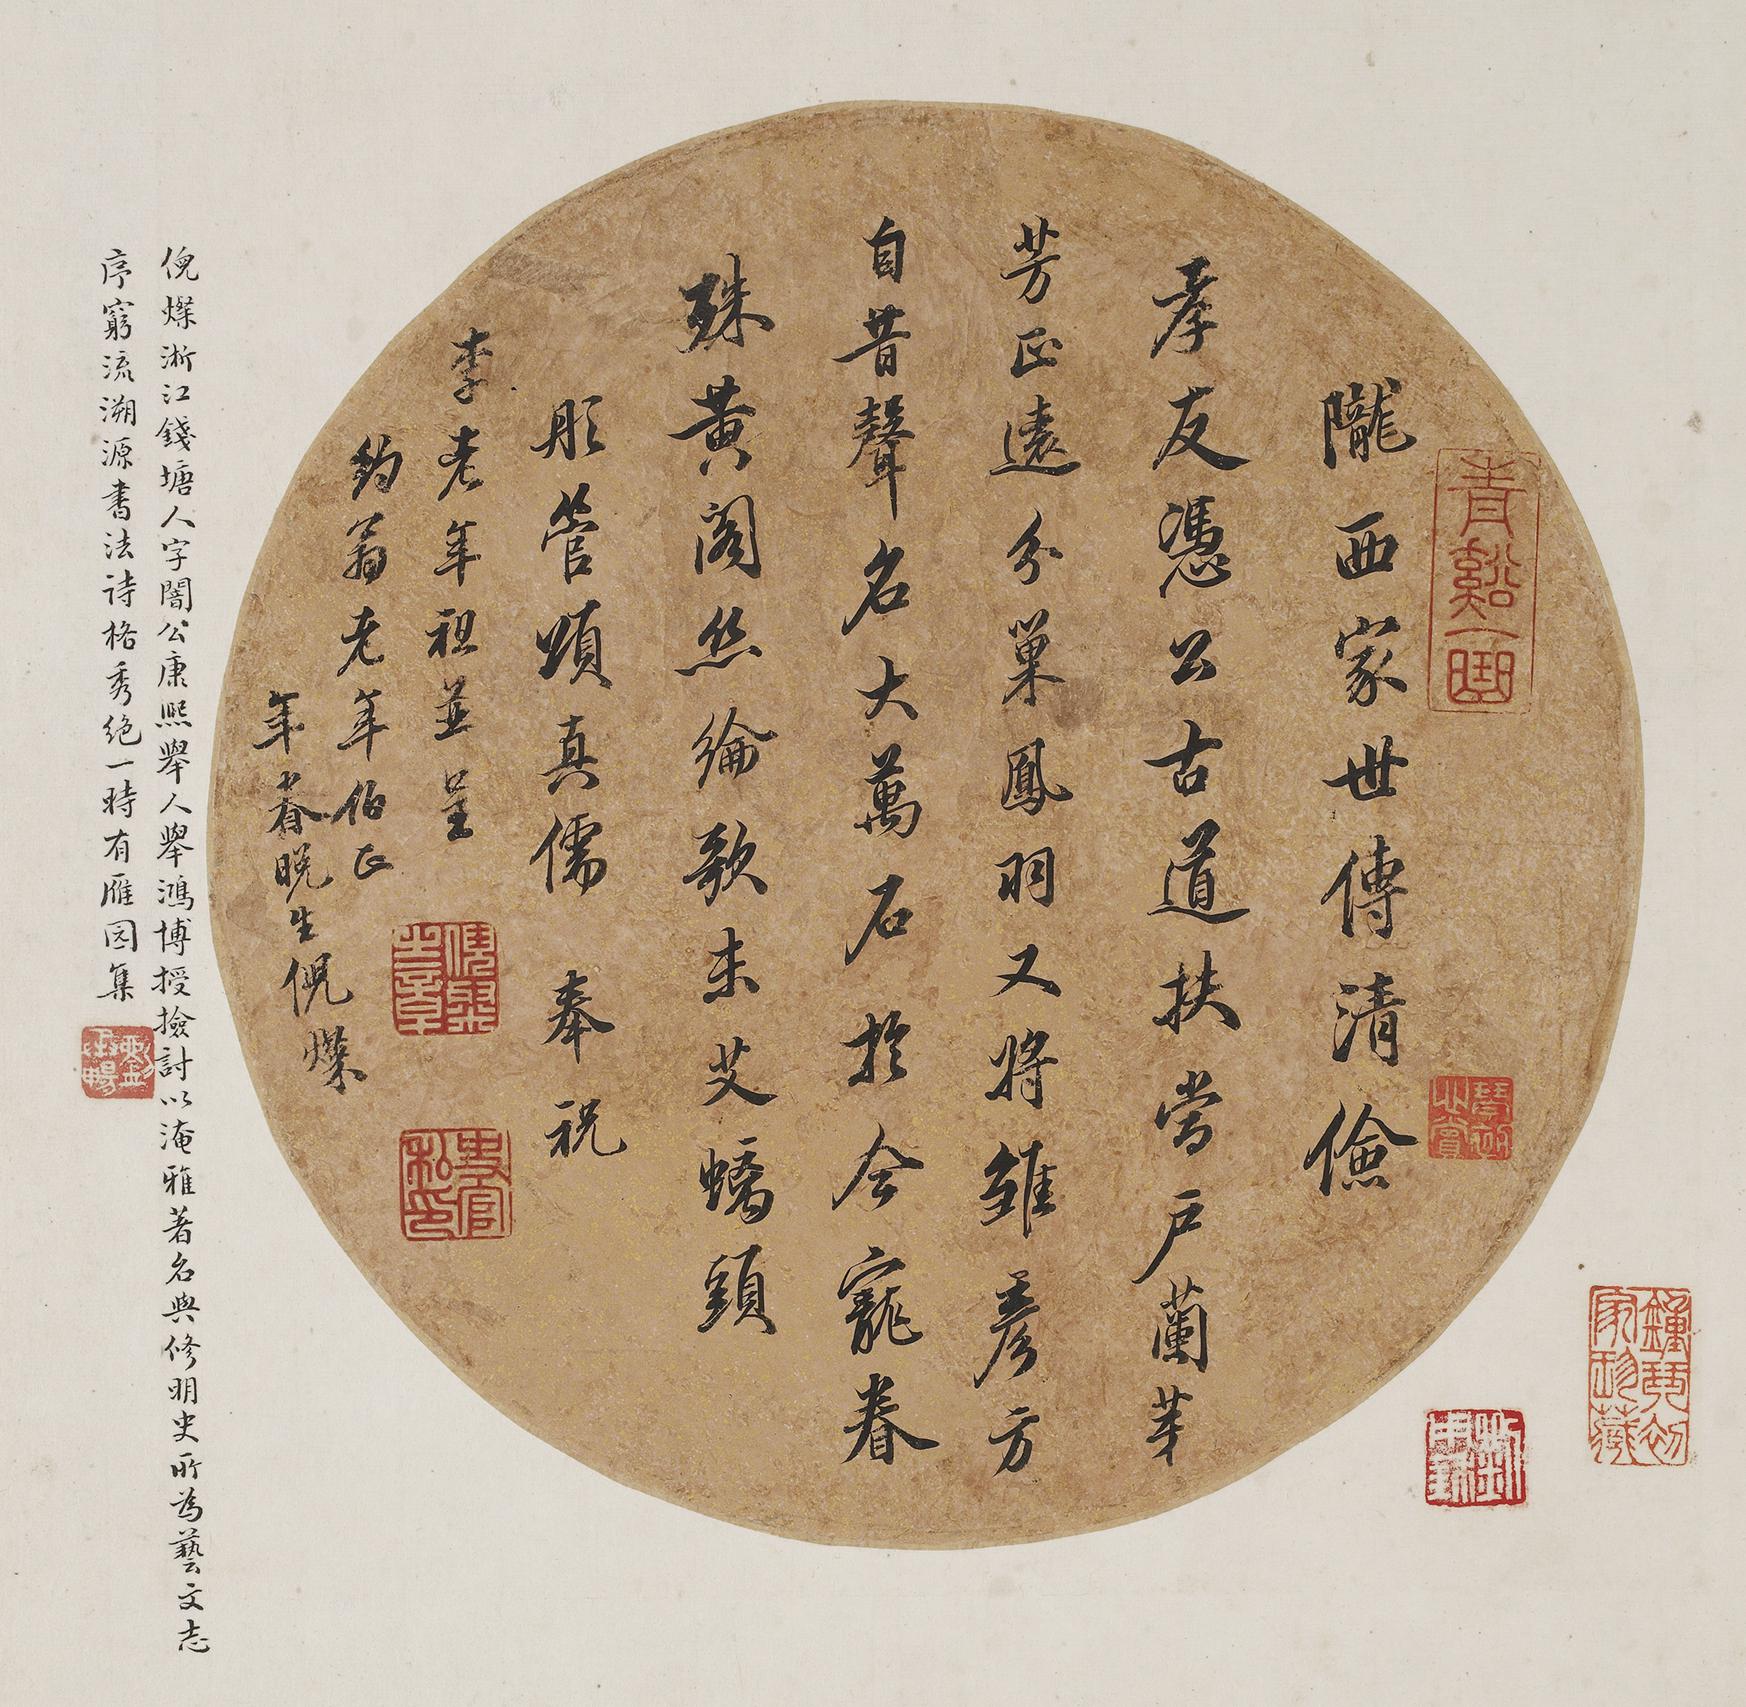 隴西家世傳清儉
孝友憑公古道扶當戶蘭芽
芳正遠分巢鳳羽又將雛彥方
自昔聲名大萬石於今寵眷
殊黃閣絲綸歌未艾螭頭
彤管頌真儒 奉祝
李老年祖並呈
鈞翁老年伯正
年眷晚生倪燦
倪燦浙江錢塘人字闇公康熙舉人舉鴻博授撿討以淹雅著名與修明史所為藝文志
序窮流溯源書法詩格秀絕一時有雁園集